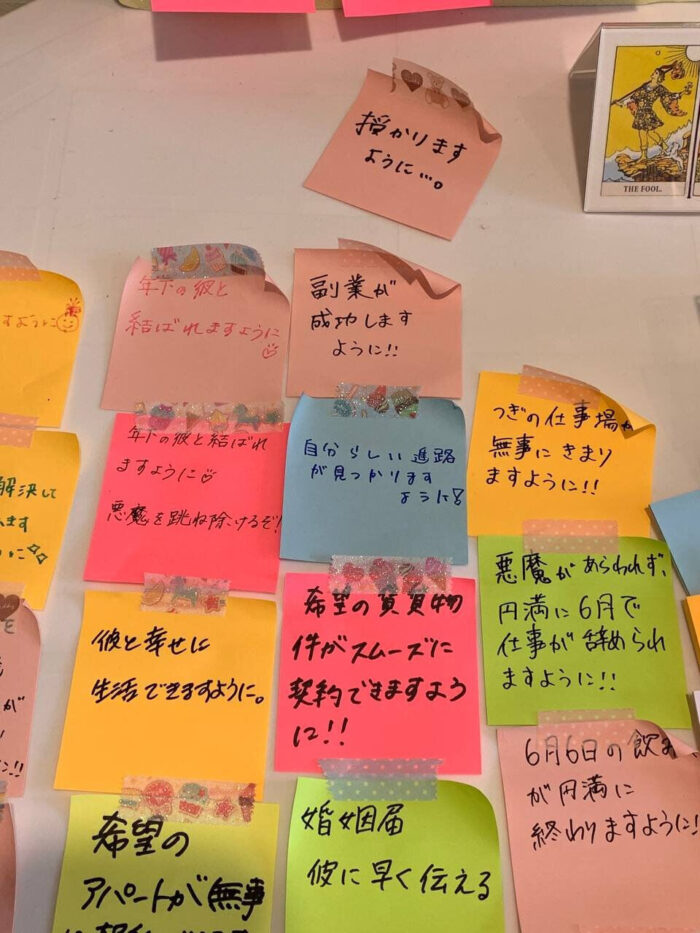 授かります
ように…。
THE FOOL.
すように
年下の彼と
結ばれますように
副業が
成功します
ように!!
つぎの仕事場が
無事にきまり
ますように!!
解決して
ます
に
年下の彼と結ばれ
ますように
悪魔を跳ね除けるぞ!
自分らしい進路
が見つかります
ように!
悪魔があらわれず、
円満に6月で
仕事が辞められ
ますように!!
を
が
!
に!!
彼と幸せに
生活できるすように。
希望の賃貸物
件がスムーズに
契約できますよう
に!!
6月6日の飲み
が円満に
終わりますように!
希望の
アパートが無事
婚姻届
彼に早く伝える